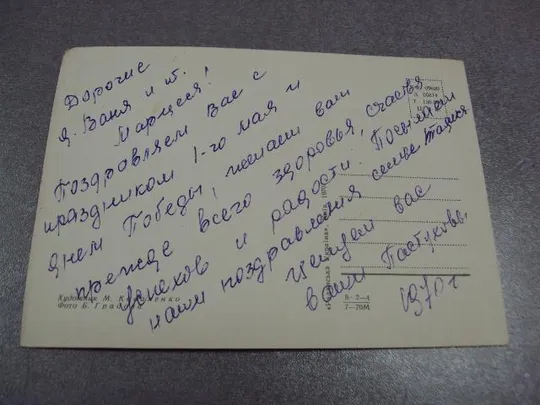 Дорогие
д. Ваня и т.
Марцеся!
Поздравляем Вас с
праздником 1-го мая и
днем Победы, желаем вам
прежде всего здоровья, счастья
успехов и радости. Посылаем
наши поздравления семье
Целуем вас
ваши Пастуховы
1970 г
Художник М.
Фото Б.
8-2-4
7-70М